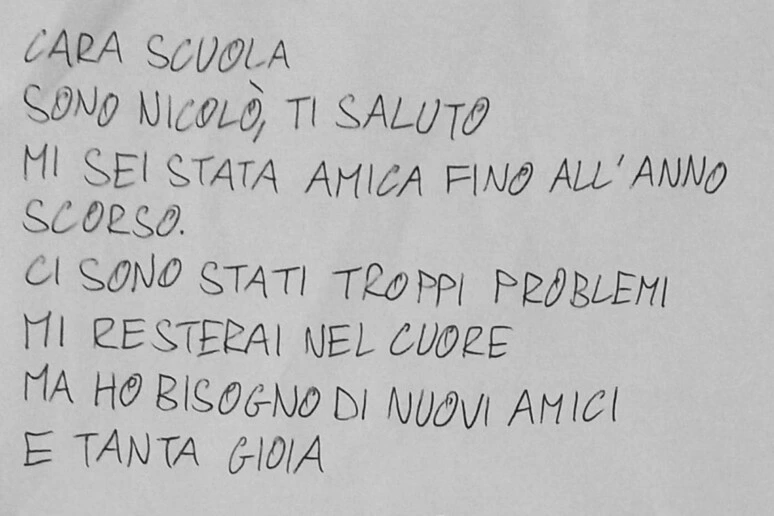 CARA SCUOLA
SONO NICOLÒ, TI SALUTO
MI SEI STATA AMICA FINO ALL'ANNO
SCORSO.
CI SONO STATI TROPPI PROBLEMI
MI RESTERAI NEL CUORE
MA HO BISOGNO DI NUOVI AMICI
E TANTA GIOIA